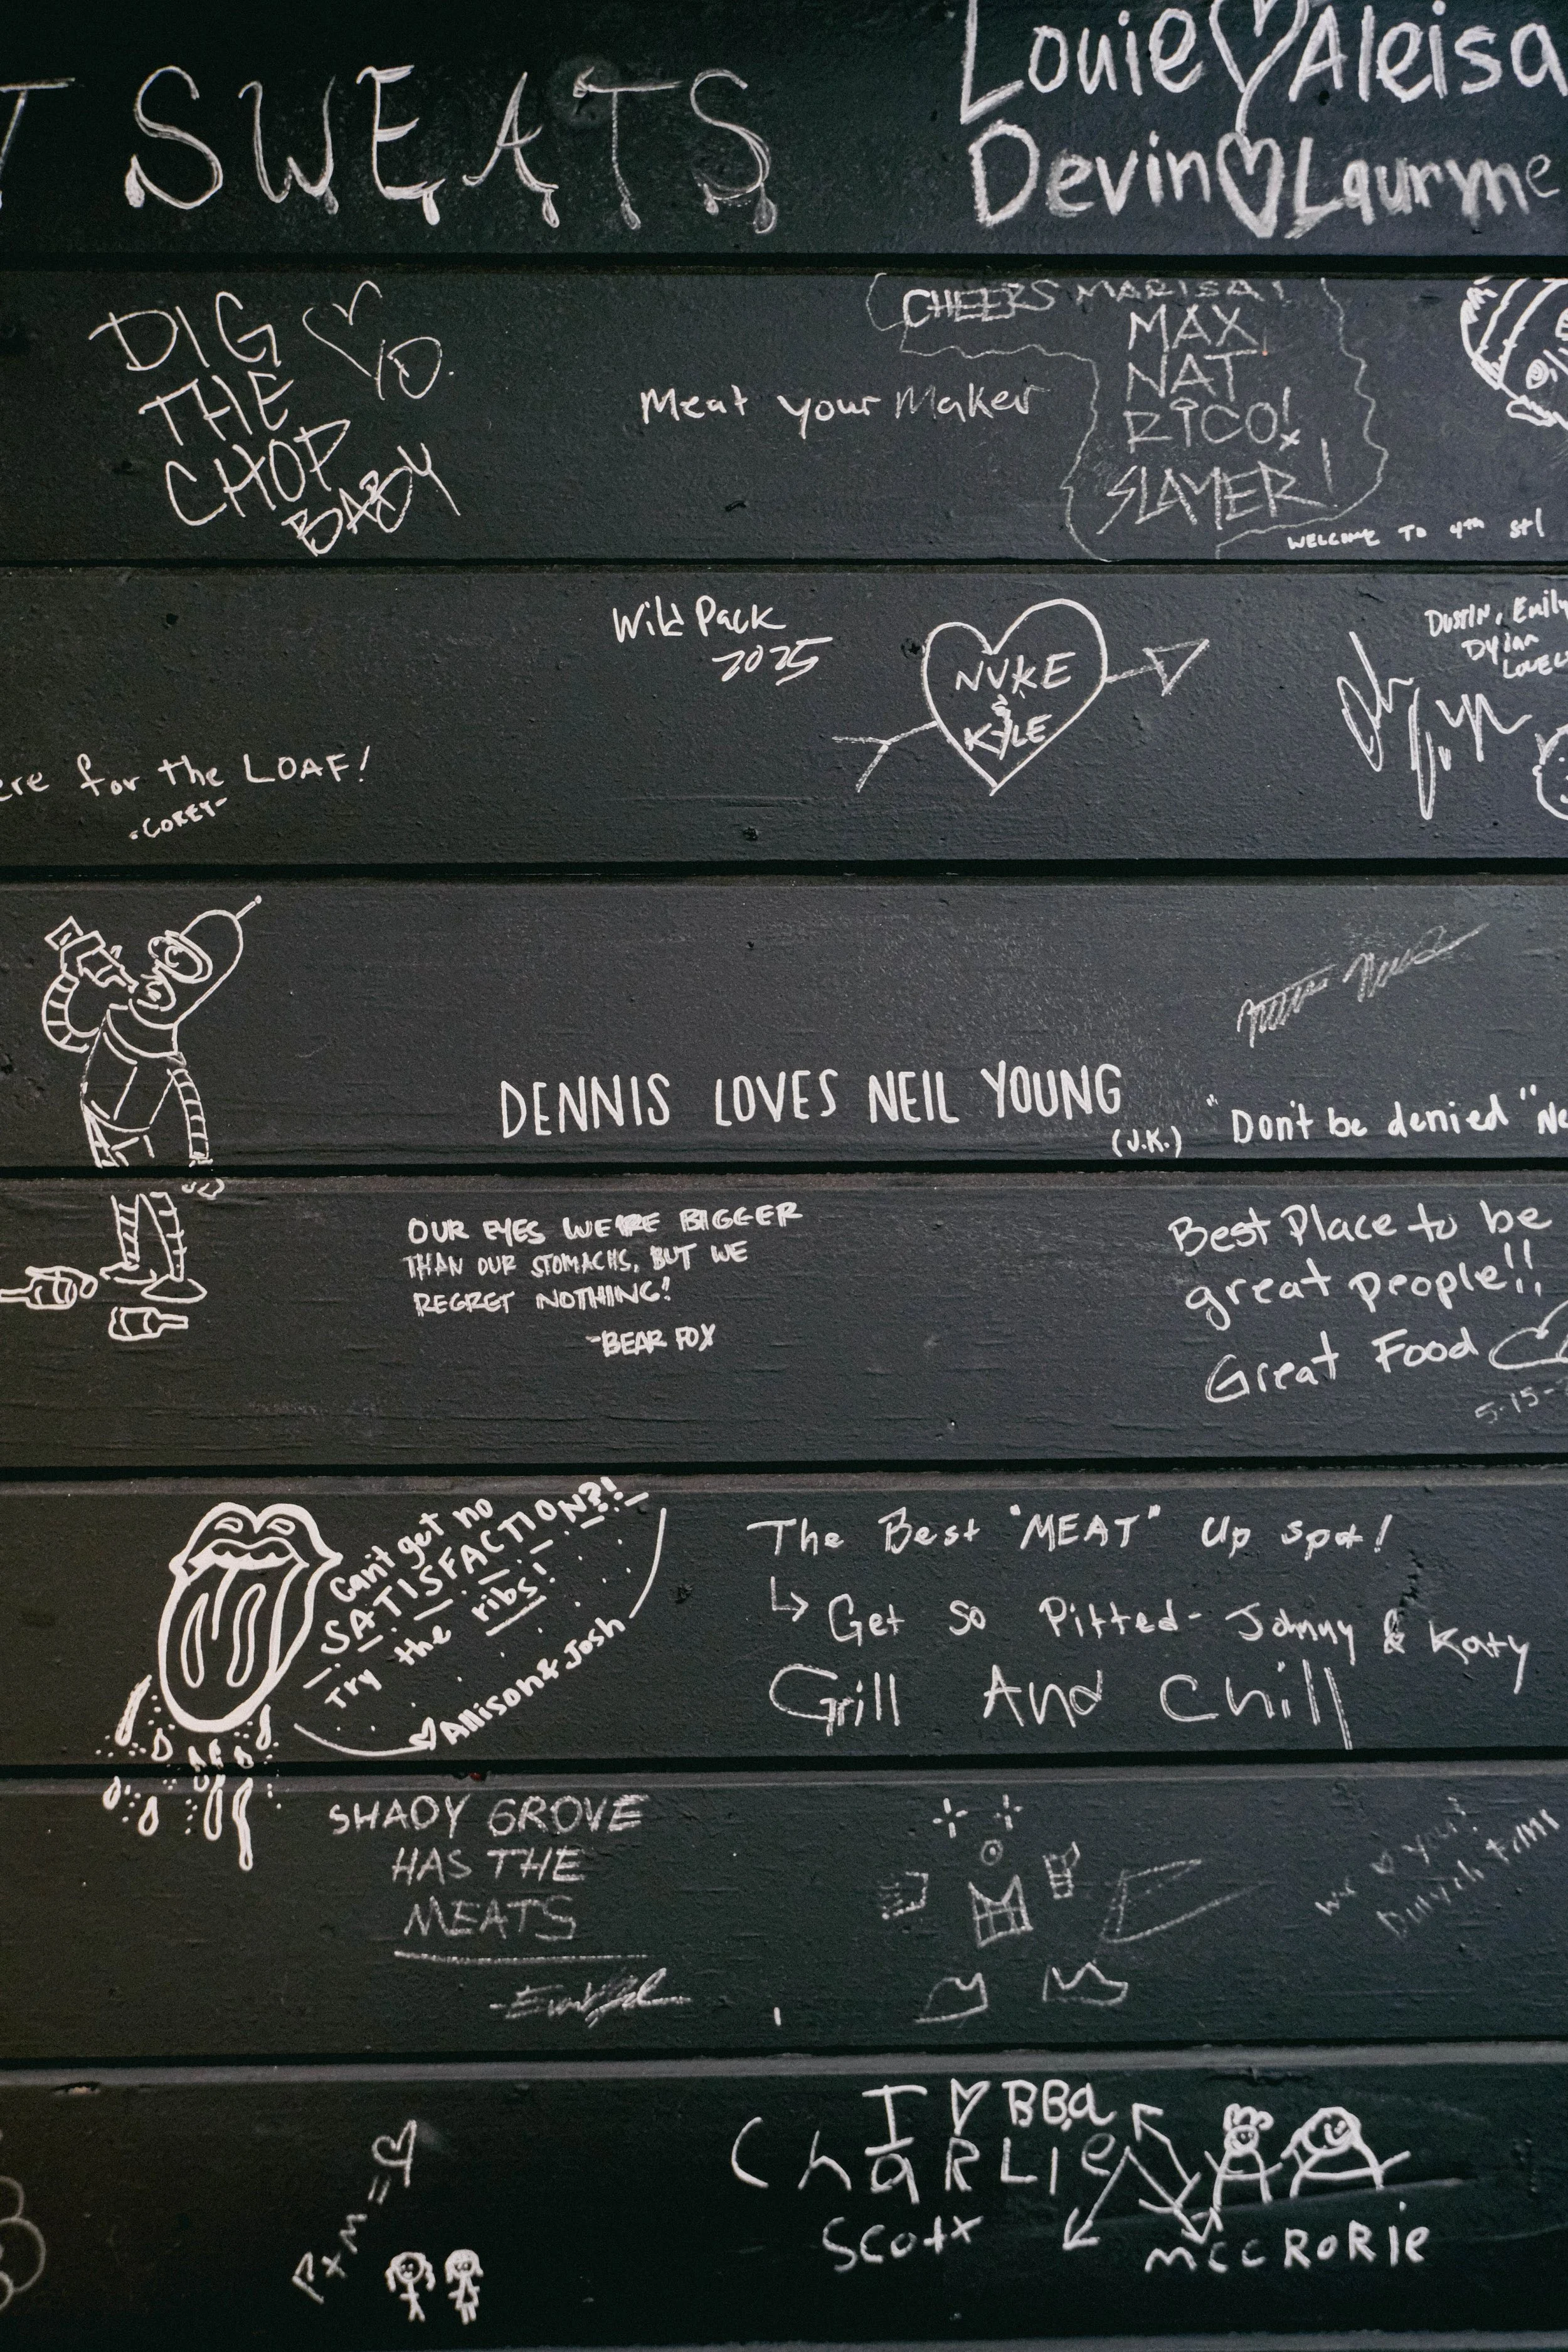 T SWEATS
Louie Aleisa
Devin Lauryne
DIG
THE
CHOP
BABY
YO.
Meat your Maker
CHEERS MARISA!
MAX
NAT
RICO!
SLAYER!
WELCOME TO 4th st!
Wild Pack
2025
NUKE
&
KYLE
DUSTIN, Emily
Dylan
ere for the LOAF!
-COREY-
DENNIS LOVES NEIL YOUNG
(J.K.)
"Don't be denied" Ne
OUR EYES WERE BIGGER
THAN OUR STOMACHS, BUT WE
REGRET NOTHING!
-BEAR FOX
Best Place to be
great people!!
Great Food
5-15-
Can't get no
SATISFACTION?!
Try the ribs!
Allison & Josh
The Best "MEAT" Up spot!
Get So Pitted- Johnny & Katy
Grill And Chill
SHADY GROVE
HAS THE
MEATS
we your
I BBQ
ChaRLie
Scott
MccRoRie
P x M =